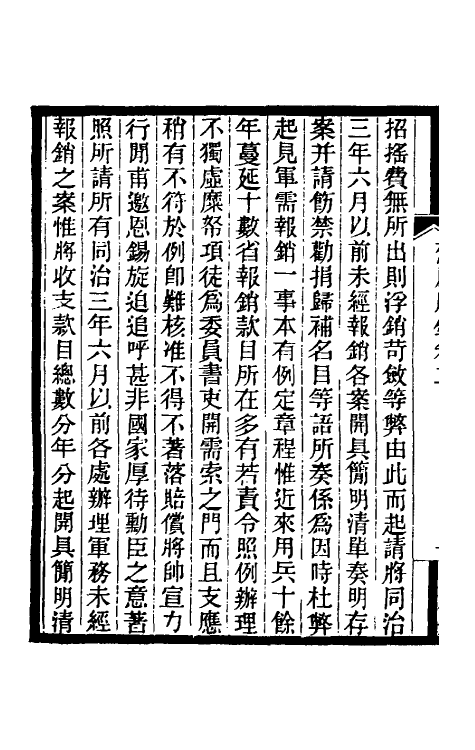 招搖費無所出則浮銷苛斂等弊由此而起請將同治
三年六月以前未經報銷各案開具簡明清單奏明存
案并請飭禁勸捐歸補名目等語所奏係爲因時杜弊
起見軍需報銷一事本有例定章程惟近來用兵十餘
年蔓延十數省報銷款目所在多有若責令照例辦理
不獨虛糜帑項徒爲委員書吏開需索之門而且支應
稍有不符於例卽難核准不得不著落賠償將帥宣力
行閒甫邀恩錫旋迫追呼甚非國家厚待勳臣之意著
照所請所有同治三年六月以前各處辦理軍務未經
報銷之案惟將收支款目總數分年分起開具簡明清